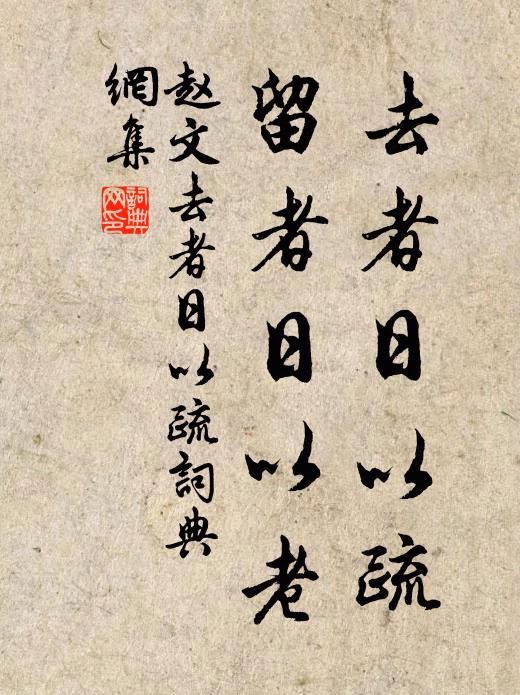 去者日以疏
留者日以老
赵文去者日以疏詞典
網集
詞典
网印